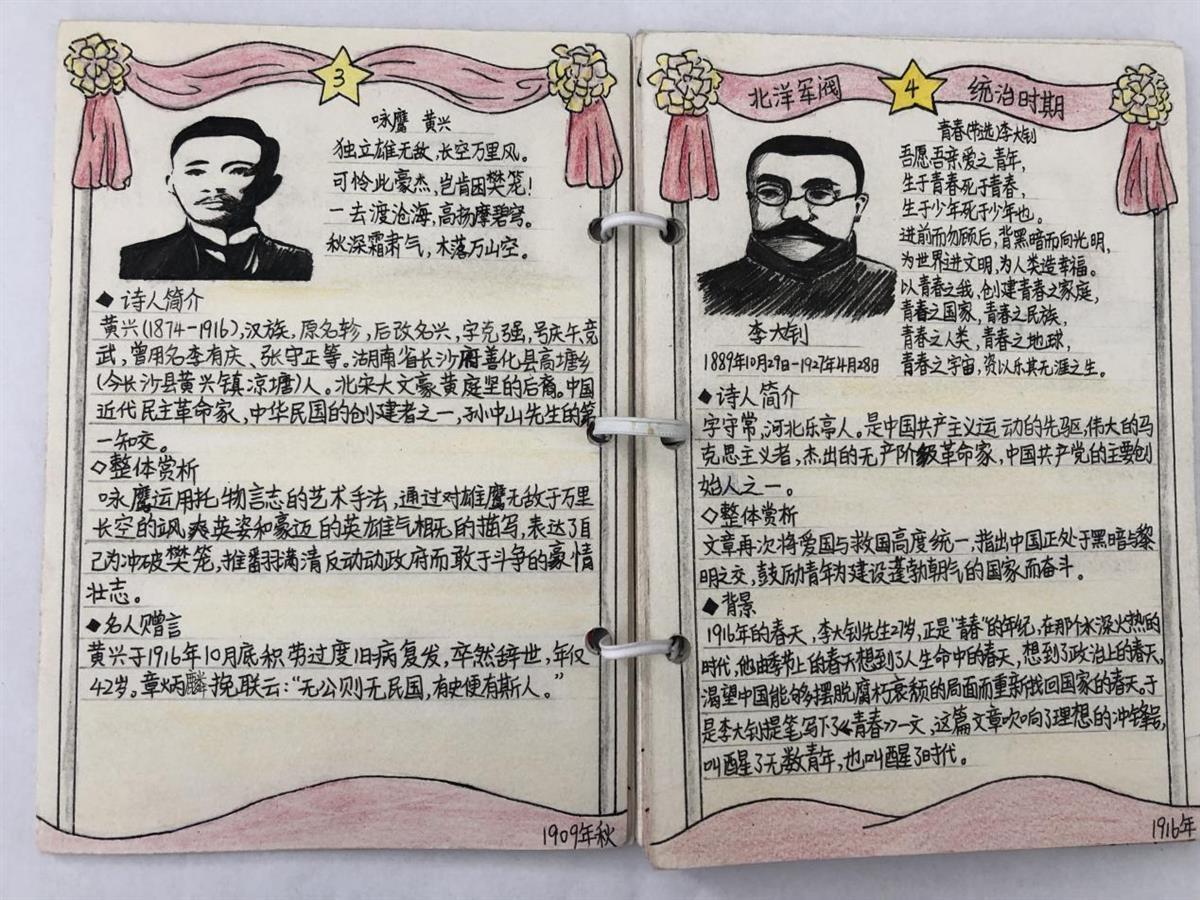 3
咏鹰 黄兴
独立雄无敌,长空万里风。
可怜此豪杰,岂肯困樊笼!
一去渡沧海,高扬摩碧穹。
秋深霜肃气,木落万山空。
◆诗人简介
黄兴(1874-1916),汉族,原名轸,后改名兴,字克强,号庆午、竞
武,曾用名李有庆、张守正等。湖南省长沙府善化县高塘乡
(今长沙县黄兴镇凉塘)人。北宋大文豪黄庭坚的后裔。中国
近代民主革命家,中华民国的创建者之一,孙中山先生的第
一知交。
◇整体赏析
咏鹰运用托物言志的艺术手法,通过对雄鹰无敌于万里
长空的飒爽英姿和豪迈的英雄气概的描写,表达了自
己为冲破樊笼,推翻满清反动动政府而敢于斗争的豪情
壮志。
◆名人赠言
黄兴于1916年10月底积劳过度旧病复发,卒然辞世,年仅
42岁。章炳麟挽联云:“无公则无民国,有史便有斯人。”
1909年秋
北洋军阀 4 统治时期
青春(节选)李大钊
吾愿吾亲爱之青年,
生于青春死于青春,
生于少年死于少年也。
进前而勿顾后,背黑暗而向光明,
为世界进文明,为人类造幸福。
以青春之我,创建青春之家庭,
青春之国家,青春之民族,
青春之人类,青春之地球,
青春之宇宙,资以乐其无涯之生。
李大钊
1889年10月29日-1927年4月28日
◆诗人简介
字守常,河北乐亭人。是中国共产主义运动的先驱,伟大的马
克思主义者,杰出的无产阶级革命家,中国共产党的主要创
始人之一。
◇整体赏析
文章再次将爱国与救国高度统一,指出中国正处于黑暗与黎
明之交,鼓励青年为建设蓬勃朝气的国家而奋斗。
◆背景
1916年的春天,李大钊先生27岁,正是“青春”的年纪,在那个水深火热的
时代,他由季节上的春天想到了人生命中的春天,想到了政治上的春天,
渴望中国能够摆脱腐朽衰颓的局面而重新找回国家的春天。于
是李大钊提笔写下了《青春》一文,这篇文章吹响了理想的冲锋号,
叫醒了无数青年,也叫醒了时代。
1916年